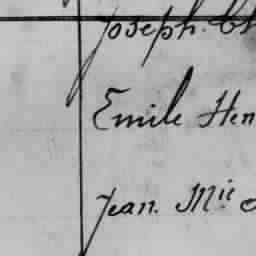 Joseph. Ch
Emile Hen
Jean. Mie